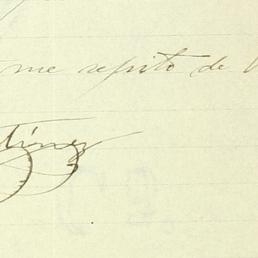 me repito de V
tínez